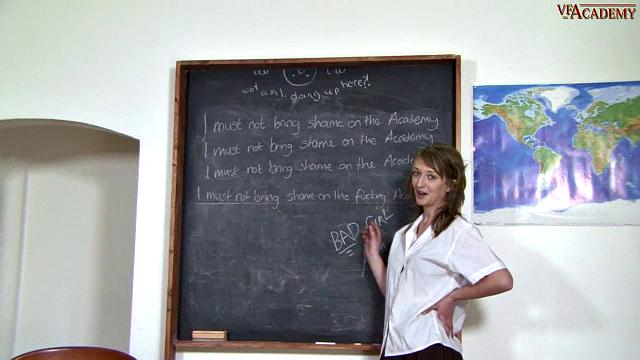 VFACADEMY
wot am I doing up here?!
I must not bring shame on the Academy
I must not bring shame on the Academy
I must not bring shame on the Acade
I must not bring shame on the fucking Ac
BAD GIRL